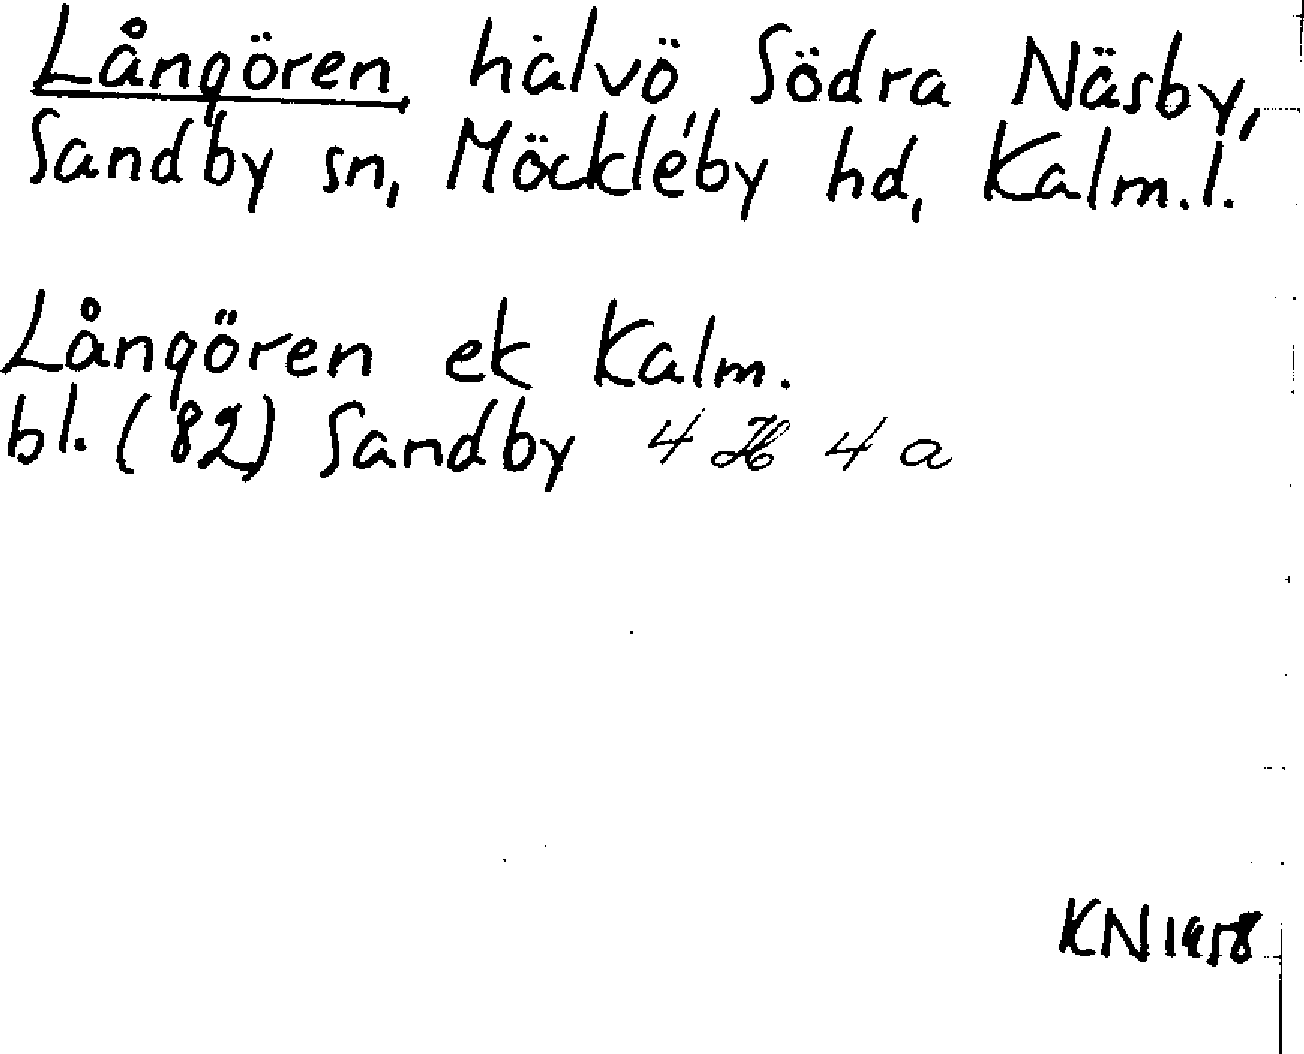 Långören, halvö, Södra Näsby,
Sandby sn, Möckleby hd, Kalm.l.
Långören ek Kalm.
bl. (82) Sandby 4 H 4 a
KN 1958